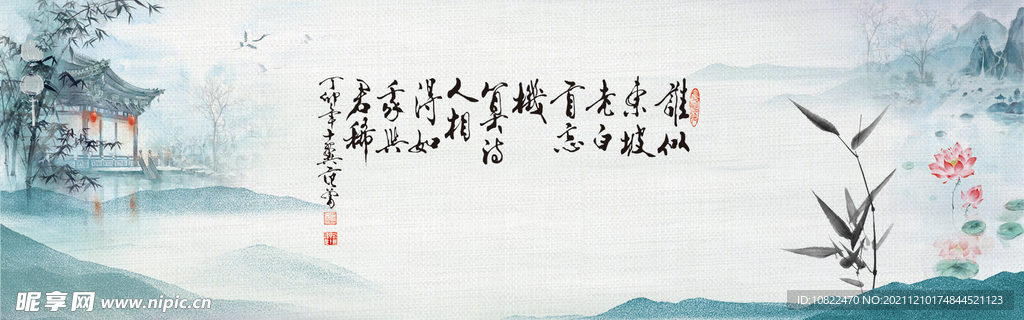 誰似
東坡
老白
首忘
機
算詩
人相
得如
我與
君稀
丁卯年十翼范曾
昵享网 www.nipic.cn
ID:10822470 NO:20211210174844521123